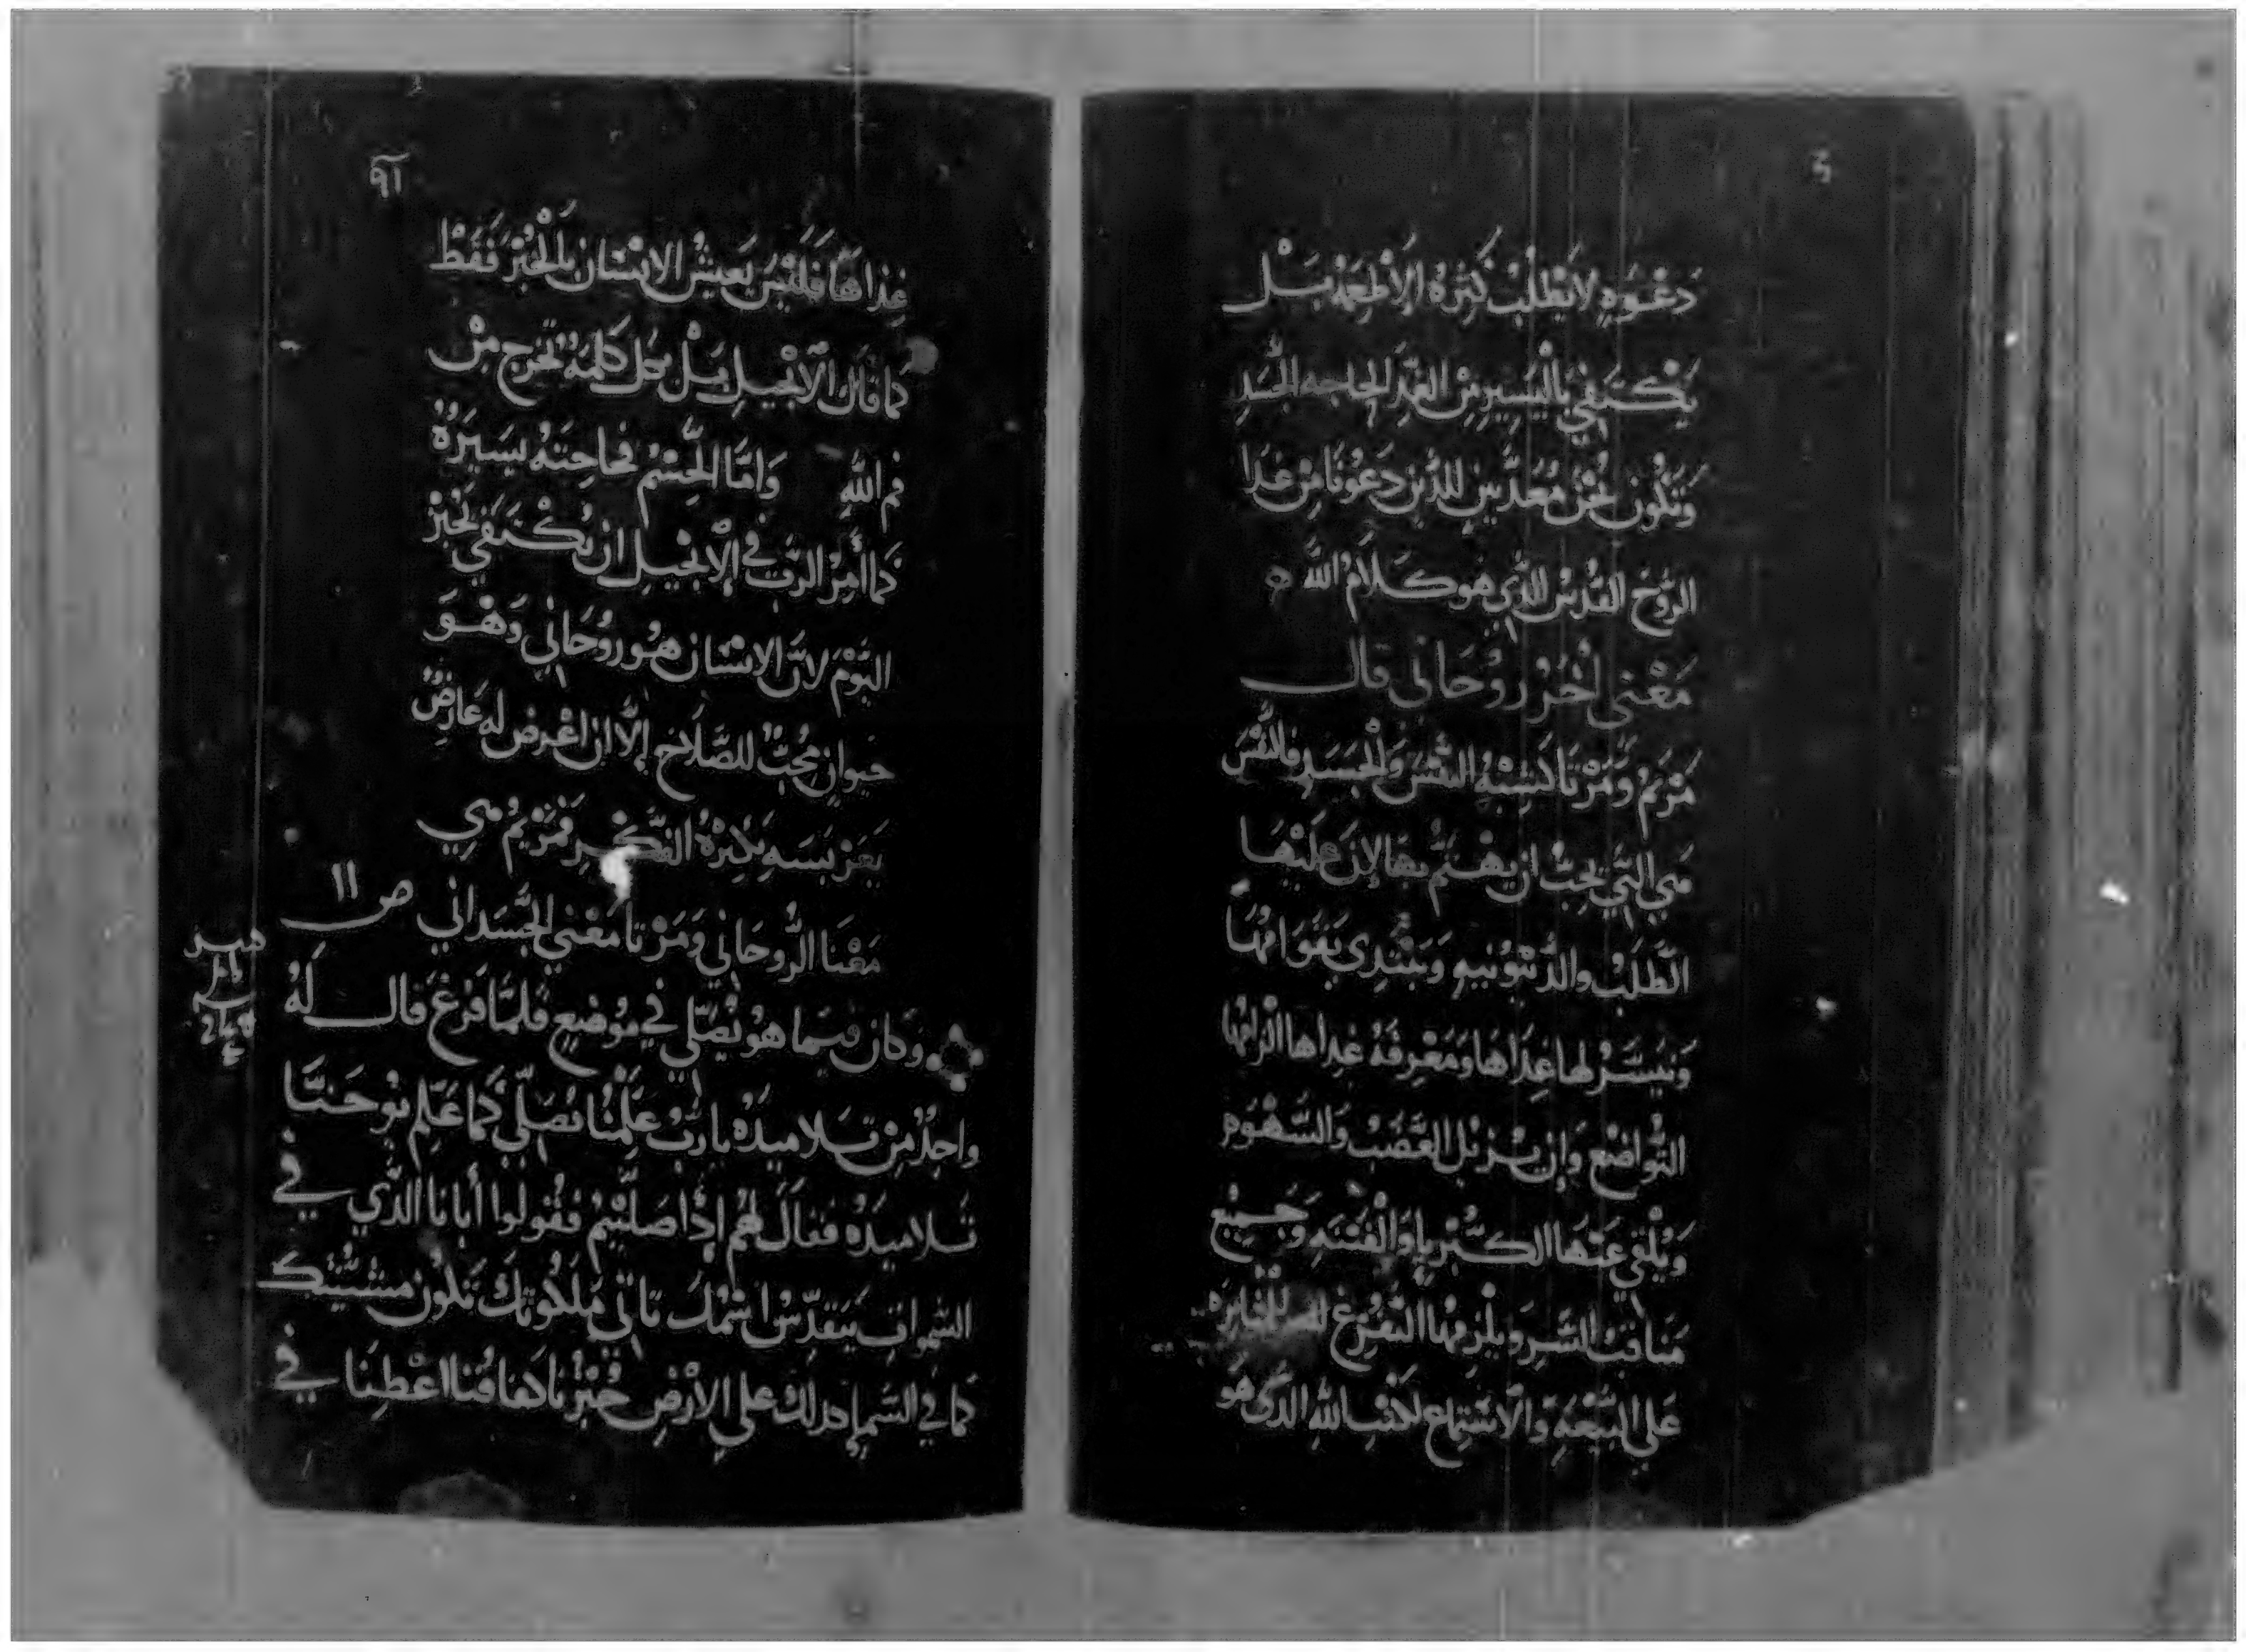 دَعْوَهٍ لا يَطْلُبْ كَثِرَهُ الأَطْعِمَهْ بَـلْ
يَكْتَفِي بِالْيَسِيرِ مِنْ القَدِر لحاجه الجَسَدِ
وَنَكُون نَحْنُ مُعَدِّينِ للذّين دَعَوْنَا مِنْ غِدَا
الرُّوحَ القُدُسْ الذي هو كَلَامُ اللَّه
مَعْنى أخَرْ رُوحَاني قال
مَرْيَمُ وَمَرْتَا كَشِبْهِ النَفْسَ وَالْجَسَدِ فالنَّفْسَ
هي التي يَجِبْ ان يهْتَمَّ بها لإن عَلَيْهَا
الطَّلَبْ والدَّيْنُونِيهِ وَيَبْتَدِي بِقَوَامْهَا
وَتَيَسَّرْ لها غِدَاهَا وَمَعْرِفَهْ غِدَاها الزامْهَا
التَّوَاضُعْ وَإن يُزيل الغَضَبْ وَالشَّهْوَهِ
وَيُلْقي عَنْهَا الكُبْرِيا وَالْفِتْنَهِ وَجَمِيعْ
مَنَاقِبْ الشَّر ويُلْزِمْهَا التَفَرُغْ للمثابره
عَلى البِيْعَهِ وَالاسْتِماع لكتب اللهِ الذي هُو
٩٢
غِذاهَا فَلَيْسَ يَعِيشُ الانسَان بالخُبْزِ فَقَطْ
كما قال الأنجيلِ بَلْ بكل كَلِمَهٍ تخرج مِنْ
فم اللهِ وَامَّا الجِسْمْ فحاجَتَهُ يَسِيرَهُ
كما أمِرْ الرَبّ في الإنجيل ان نَكْتَفي بخبز
اليَوْمَ لانَّ الانسَان هُو رُوحَاني وَهْو
حيوان مُحِبٌ للصَّلَاح إلاَّ ان اعْرض له عَارِضٌ
بغريسَهِ بكِثْرَهْ الفكر فَمَرْيَمُ هي
مَعْنَا الرُّوحَاني وَمَرْتا مَعْنى الجَسَدَاني
ص ١١
وَكان فيمَا هُو يُصَلّي في مَوْضِعٍ فَلمَّا فَرَغَ قال لَهُ
واحِدٌ مِنْ تَلاميذَهُ يا رَبُ عَلِّمْنَا نُصَلّي كَمَا عَلّم يُوحَنَّا
تَلاميذَهُ فقال لَهُم إذا صَلَّيْتُمْ فَقُولوا أبانا الذّي في
السَّمواتِ يَتَقدّسُ اسْمُكَ تاتي مَلَكُوتكَ تَكُون مَشِيَّتك
كما في السَّمَا كذلك علي الأرْض خُبْزُنَا كفافُنا اعْطِنَا في